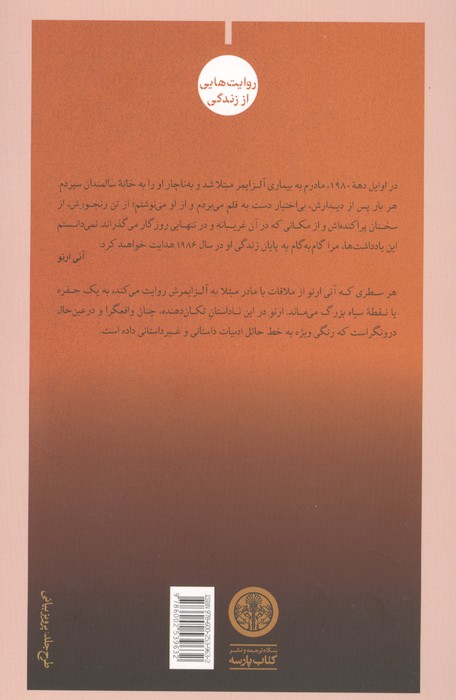 روایت‌هایی
از زندگی
در اوایل دههٔ ۱۹۸۰، مادرم به بیماری آلزایمر مبتلا شد و به‌ناچار او را به خانهٔ سالمندان سپردم.
هر بار پس از دیدارش، بی‌اختیار دست به قلم می‌بردم و از او می‌نوشتم؛ از تن رنجورش، از
سخنان پراکنده‌اش و از مکانی که در آن غریبانه و در تنهایی روزگار می‌گذراند. نمی‌دانستم
این یادداشت‌ها، مرا گام‌به‌گام به پایان زندگی او در سال ۱۹۸۶ هدایت خواهند کرد.
آنی ارنو
هر سطری که آنی ارنو از ملاقات با مادر مبتلا به آلزایمرش روایت می‌کند، به یک حفره
یا نقطهٔ سیاه بزرگ می‌ماند. ارنو در این ناداستانِ تکان‌دهنده، چنان واقعگرا و درعین‌حال
درونگراست که رنگی ویژه به خط حائل ادبیات داستانی و غیرداستانی داده است.
طرح جلد: پرویز بیانی
ISBN: 978-600-253-963-2
9786002539632
بنگاه ترجمه و نشر
کتاب پارسه